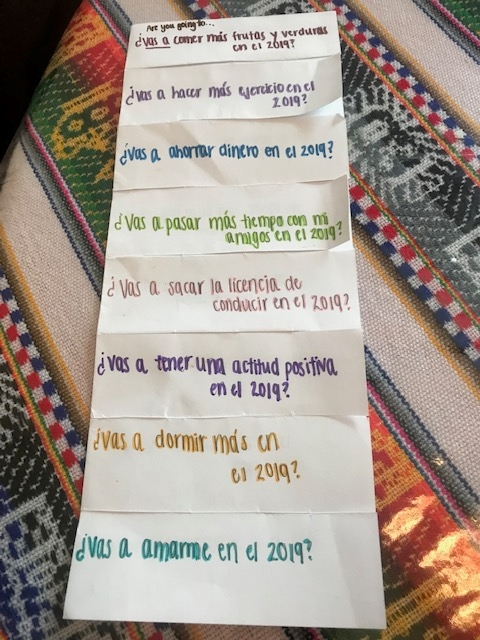 Are you going to...
¿Vas a comer más frutas y verduras
en el 2019?
¿Vas a hacer más ejercicio en el
2019?
¿Vas a ahorrar dinero en el 2019?
¿Vas a pasar más tiempo con mi
amigos en el 2019?
¿Vas a sacar la licencia de
conducir en el 2019?
¿Vas a tener una actitud positiva
en el 2019?
¿Vas a dormir más en
el 2019?
¿Vas a amarme en el 2019?